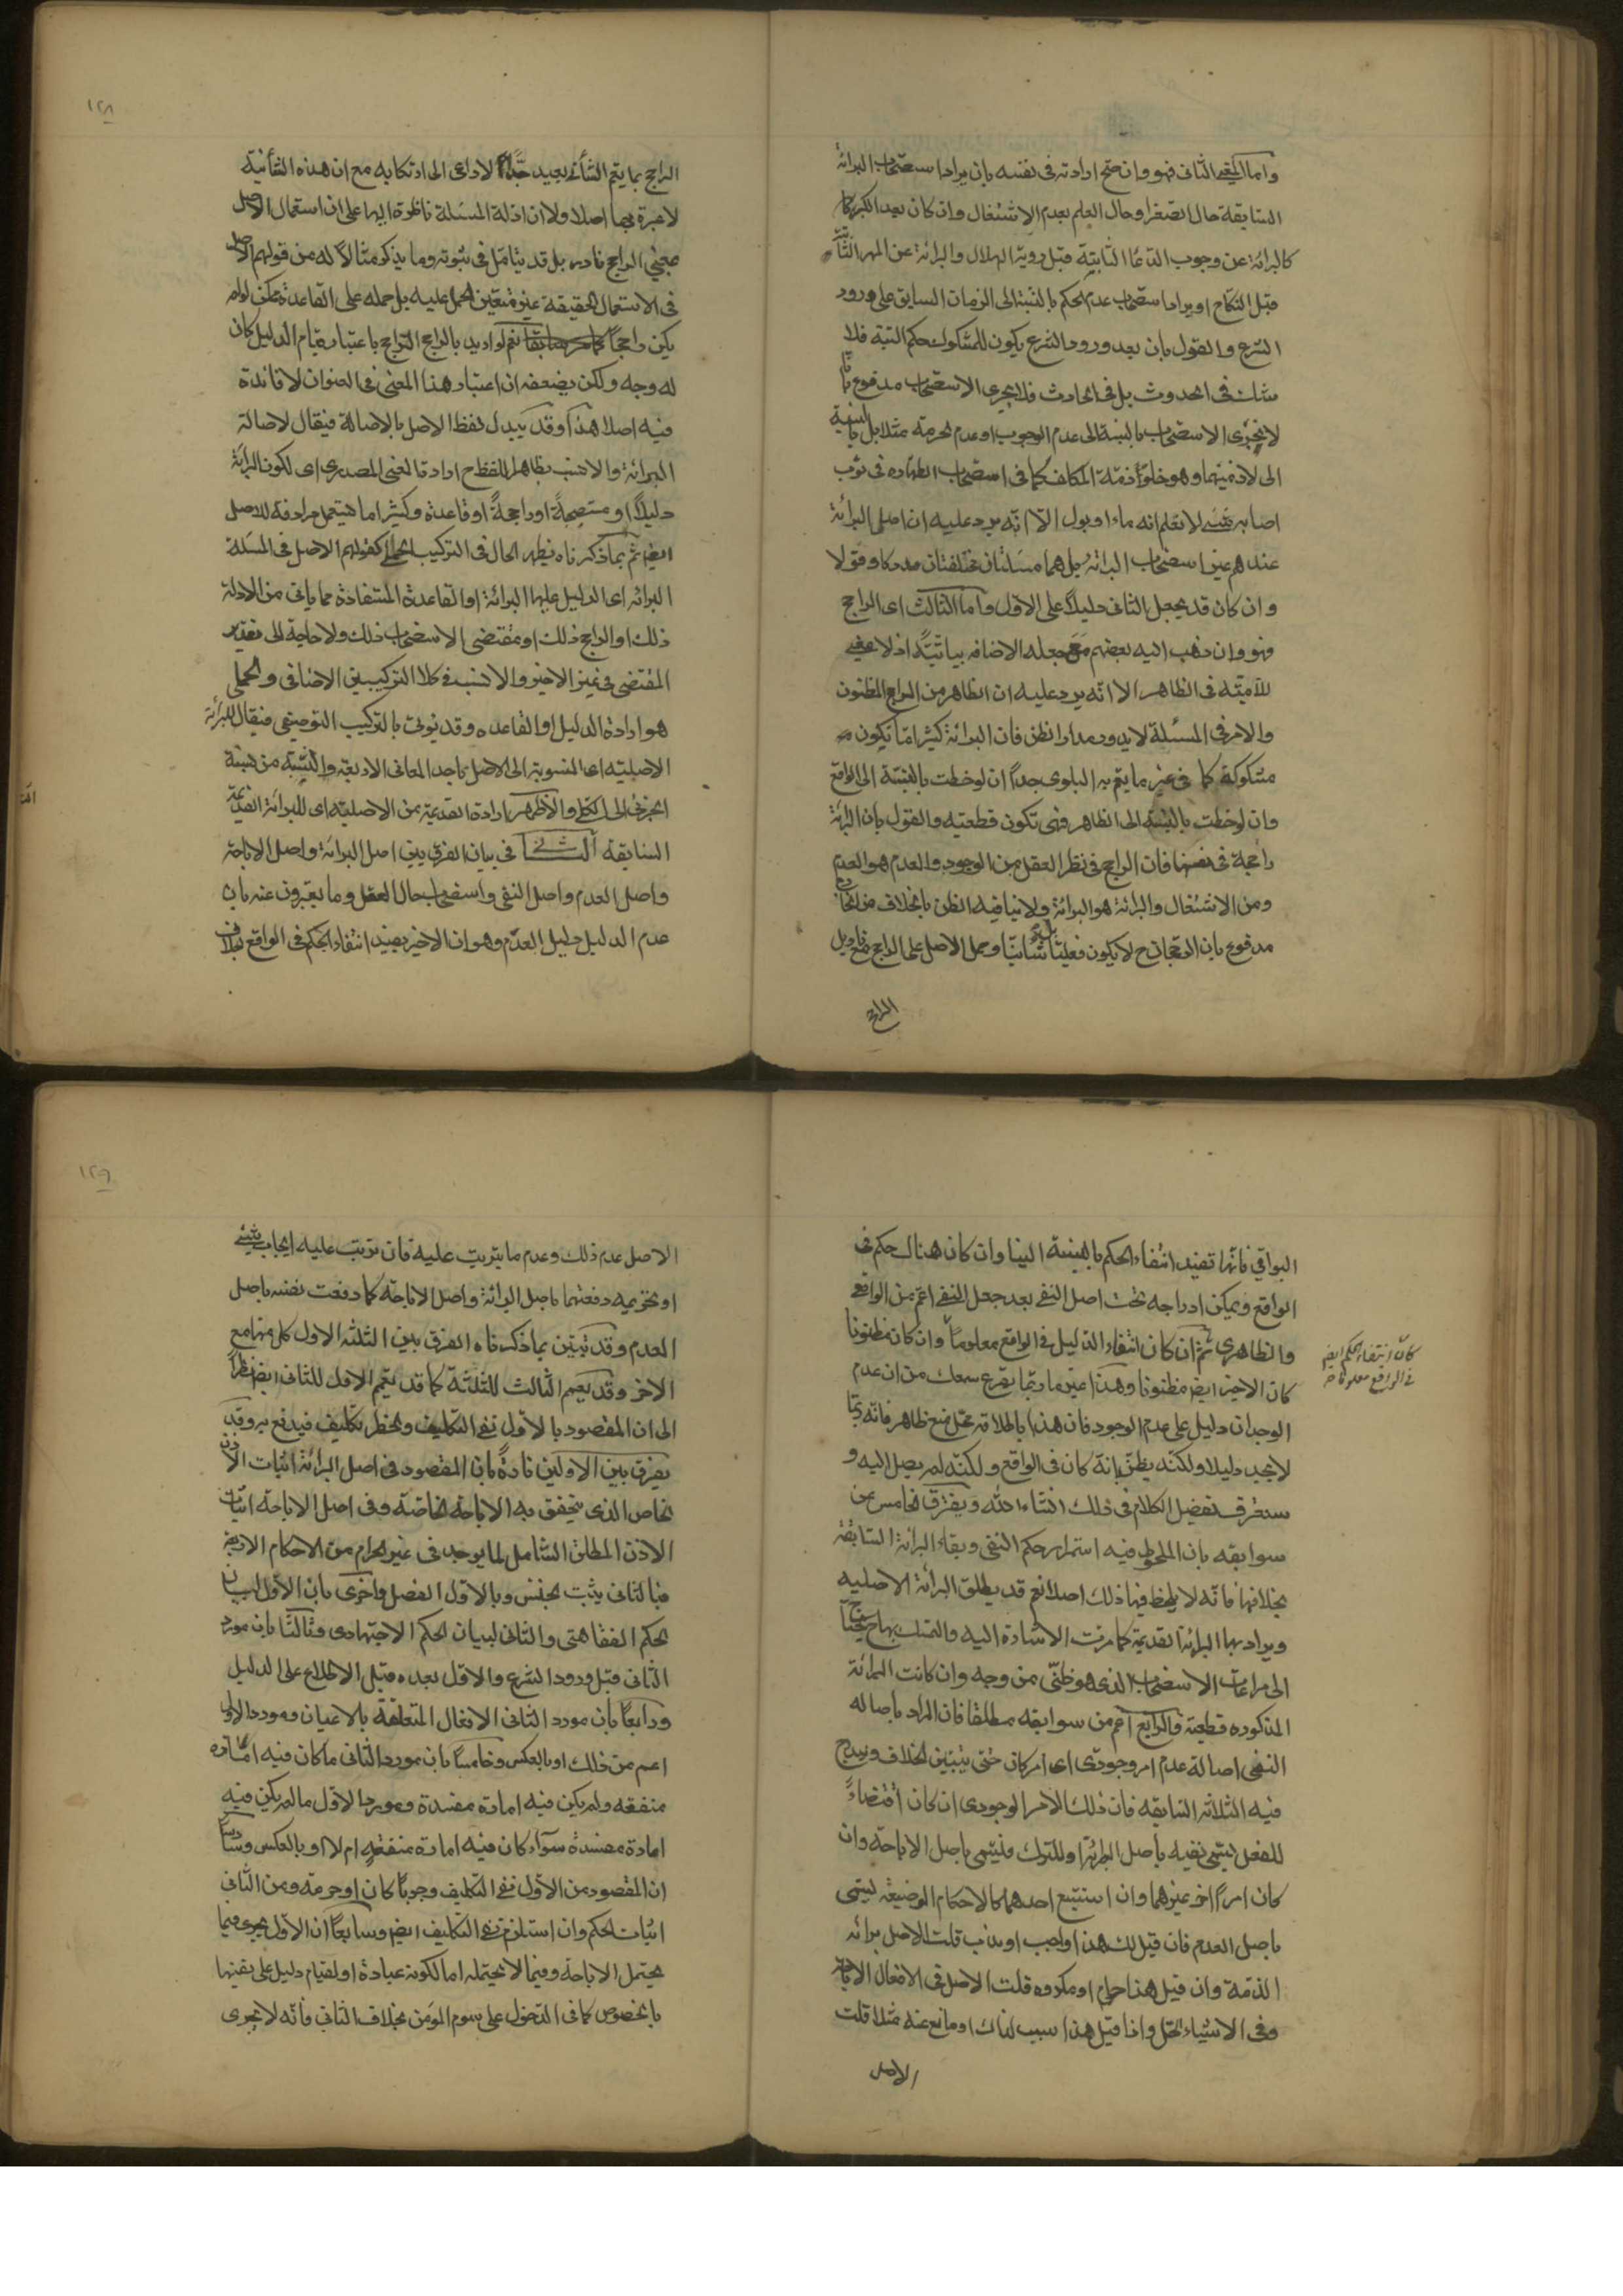 واما المعنى الثانى فهو وان صح ارادته فى نفسه بان يراد استصحاب البرائة
السابقة حال الصغر او حال العلم بعدم الاشتغال وان كان بعد الكبر
كالبرائة عن وجوب الدعاء الثابتة قبل روية الهلال والبرائة عن المهر الثابتة
قبل النكاح او يراد استصحاب عدم الحكم بالنسبة الى الزمان السابق على ورود
الشرع والقول بان بعد ورود الشرع يكون للمشكوك حكم البتة فلا
شك فى الحدوث بل فى الحادث فلا يجرى الاستصحاب مدفوع بانا
لا نجرى الاستصحاب بالنسبة الى عدم الوجوب او عدم الحرمة مثلا بل بالنسبة
الى لازميتهما وهو خلو ذمة المكلف كما فى استصحاب الطهاره فى ثوب
اصابه شئ لا نعلم انه ماء او بول الا انه يرد عليه ان اصل البرائة
عندهم غير استصحاب البرائة بل هما مسئلتان مختلفتان مدركا وقولا
وان كان قد يجعل الثانى دليلاً على الاول واما الثالث اى الراجح
فهو وان ذهب اليه بعضهم مع جعله الاضافه بيانية اذ لا معنى
للامية فى الظاهر الا انه يرد عليه ان الظاهر من الراجح المظنون
والامر فى المسئلة لا يدور مدار الظن فان البرائة كثيرا ما تكون
مشكوكة كما فى غير ما يعم به البلوى جداً ان لوحظت بالنسبة الى الواقع
وان لوحظت بالنسبة الى الظاهر فهى تكون قطعيه والقول بان البرائة
راجحة فى نفسها فان الراجح فى نظر العقل من الوجود والعدم هو العدم
ومن الاشتغال والبرائة هو البرائة ولا ينافيه الظن بالخلاف من الخارج
مدفوع بان الرجحان ح لا يكون فعليا بل شانيا وحمل الاصل على الراجح مع تاويل
الراجح
١٢٨
الراجح بما يعم الشأنى بعيد جداً لا داعى الى ارتكابه مع ان هذه الشأنية
لا عبرة بها اصلا ولا ان ادلة المسئلة ناظرة اليها على ان استعمال الاصل
بمعنى الراجح نادر بل قد يتامل فى ثبوته وما يذكر مثالاً له من قولهم الاصل
فى الاستعمال الحقيقة غير متعين الحمل عليه بل حمله على القاعدة ممكن لو لم
يكن راجحاً نعم لو اريد بالراجح الراجح باعتبار قيام الدليل كان
له وجه ولكن يضعفه ان اعتبار هذا المعنى فى العنوان لا فائدة
فيه اصلا هذا وقد يبدل لفظ الاصل بالاصالة فيقال لاصالة
البرائة والانسب بظاهر اللفظ ح ارادة المعنى المصدرى اى لكون البرائة
دليلاً او مستصحبةً او راجحةً او قاعدة وكثيرا ما يستعمل مرادفة للاصل
ايضا ثم بما ذكرناه يظهر الحال فى التركيب الحملى كقولهم الاصل فى المسئلة
البرائه اى الدليل عليها البرائة او القاعدة المستفادة مما ياتى من الادلة
ذلك او الراجح ذلك او مقتضى الاستصحاب ذلك ولا حاجة الى تقدير
المقتضى فى غير الاخير والانسب فى كلا التركيبين الاضافى والحملى
هو ارادة الدليل او القاعده وقد يؤتى بالتركيب التوصيفى فيقال للبرائة
الاصلية اى المنسوبة الى الاصل باحد المعانى الاربعة والنسبة من نسبة
الجزئى الى الكلى والاظهر ارادة القديمة من الاصلية اى للبرائة القديمة
السابقة الثانى فى بيان الفرق بين اصل البرائة واصل الاباحة
واصل العدم واصل النفى واستصحاب حال العقل وما يعبرون عنه بان
عدم الدليل دليل العدم وهو ان الاخير يفيد انتفاء الحكم فى الواقع بخلاف
البواقى فانها تفيد انتفاء الحكم بالنسبة الينا وان كان هناك حكم فى
الواقع ويمكن ادراجه تحت اصل النفى بعد جعل النفى اعم من الواقعى
والظاهرى ثم ان كان انتفاء الدليل فى الواقع معلوماً وان كان مظنونا
كان انتفاء الحكم ايض
فى الواقع معلوما
كان الاخير ايض مظنونا وهذا عين ما ربما يقرع سمعك من ان عدم
الوجدان دليل على عدم الوجود فان هذا باطلاقه محل منع ظاهر فانه ربما
لا نجد دليلا ولكنه يظن بانه كان فى الواقع ولكنه لم يصل اليه و
ستعرف تفصيل الكلام فى ذلك انشاء الله ويفترق الخامس عن
سوابقه بان الملحوظ فيه استمرار حكم النفى وبقاء البرائة السابقة
بخلافها فانه لا يلحظ فيها ذلك اصلا نعم قد يطلق البرائة الاصليه
ويراد بها البرائة القديمة كما مرت الاشارة اليه والتمسك بها ح يحتاج
الى مراعات الاستصحاب الذى هو ظنى من وجه وان كانت البرائة
المذكوره قطعية والرابع اعم من سوابقه مطلقا فان المراد باصاله
النفى اصالة عدم امر وجودى اى امر كان حتى يتبين الخلاف ويندرج
فيه الثلاثه السابقه فان ذلك الامر الوجودى ان كان اقتضاءً
للفعل يسمى نفيه باصل البرائة او للترك فيسمى باصل الاباحة وان
كان امراً اخر غيرهما وان استتبع احدهما كالاحكام الوضيعة يسمى
باصل العدم فان قيل لك هذا واجب او ندب قلت الاصل برائه
الذمة وان قيل هذا حرام او مكروه قلت الاصل فى الافعال الاباحة
وفى الاشياء الحل واذا قيل هذا سبب لذاك او مانع عنه مثلا قلت
الاصل
١٢٩
الاصل عدم ذلك وعدم ما يترتب عليه فان ترتب عليه ايجاب شئ
او تحريمه دفعتهما باصل البرائة واصل الاباحة كما دفعت نفسه باصل
العدم وقد تبين بما ذكرناه الفرق بين الثلثه الاول كل منها مع
الاخر وقد يعمم الثالث للثلثة كما قد يعمم الاول للثانى ايض نظراً
الى ان المقصود بالاول نفى التكليف والحظر تكليف فيدفع به وقد
يفرق بين الاولين تارةً بان المقصود فى اصل البرائة اثبات الاذن
الخاص الذى يتحقق به الاباحة الخاصة وفى اصل الاباحة اثبات
الاذن المطلق الشامل لما يوجد فى غير الحرام من الاحكام الاربعة
فبالثانى يثبت الجنس وبالاول الفصل واخرى بان الاول لبيان
الحكم الفقاهتى والثانى لبيان الحكم الاجتهادى وثالثا بان مورد
الثانى قبل ورود الشرع والاول بعده قبل الاطلاع على الدليل
ورابعاً بان مورد الثانى الافعال المتعلقة بالاعيان ومورد الاول
اعم من ذلك او بالعكس وخامساً بان مورد الثانى ما كان فيه امارة
منفعه ولم يكن فيه امارة مفسدة ومورد الاول ما لم يكن فيه
امارة مفسدة سواء كان فيه امارة منفعة ام لا او بالعكس وسادساً
ان المقصود من الاول نفى التكليف وجوباً كان او حرمة ومن الثانى
اثبات الحكم وان استلزم نفى التكليف ايض وسابعاً ان الاول يجرى فيما
يحتمل الاباحة وفيما لا يحتمله اما لكونه عبادة او لقيام دليل على نفيها
بالخصوص كما فى الدخول على سوم المؤمن بخلاف الثانى فانه لا يجرى